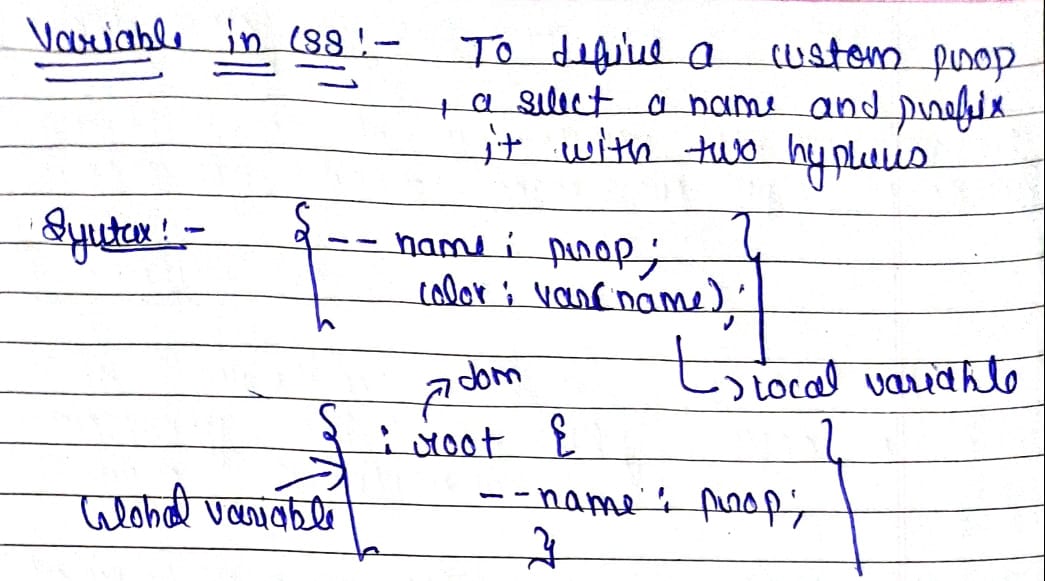 Variable in CSS :- To define a custom prop
, a select a name and prefix
it with two hyphens
Syntax :- { -- name : prop ; }
color : var(name) ;
↳ local variable
↗ dom
{ : root { }
Global variable → --name : prop ;
}